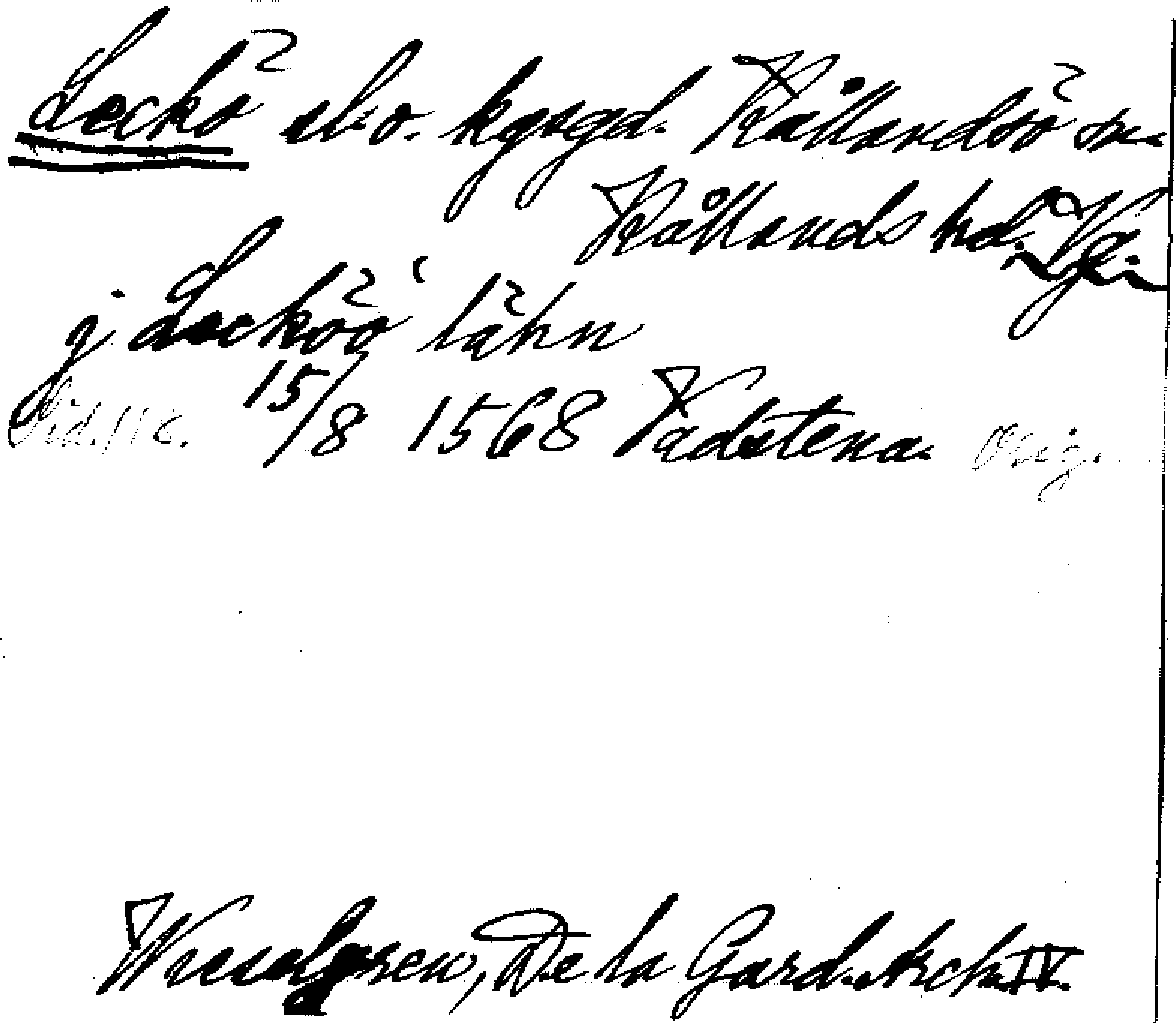 Leckö sl. o. kgsgd. Kållandsö sn.
Kållands hd. Vg.
j Lecköö lähn
Sid. 116. 15/8 1568 Vadstena. Orig.
Wieselgren, De la Gard. Arch. IV.